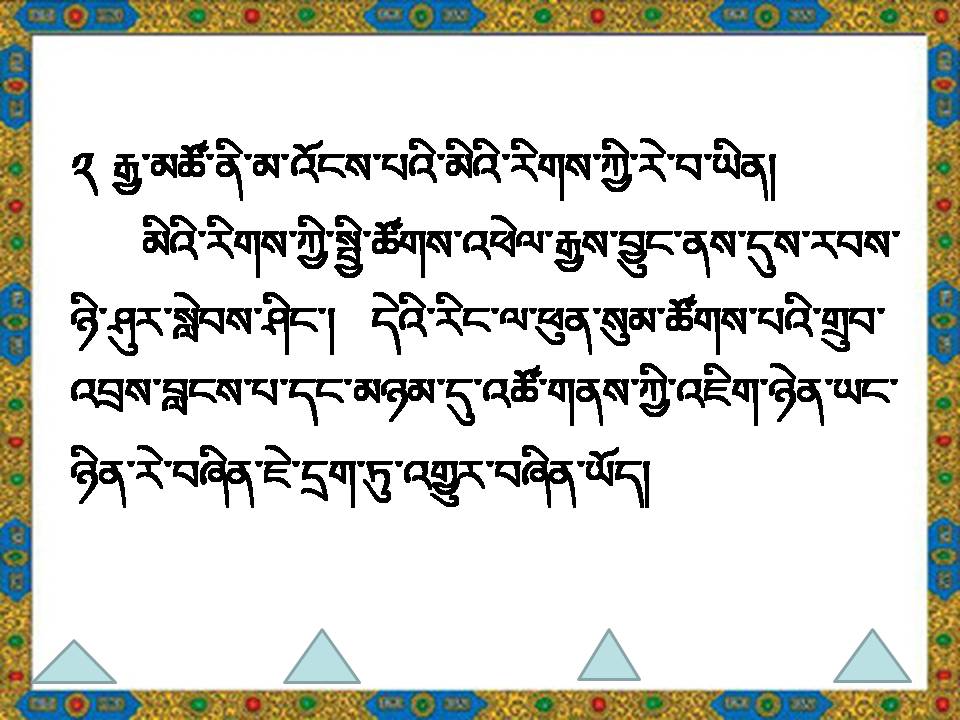 ༢ རྒྱ་མཚོ་ནི་མ་འོངས་པའི་མིའི་རིགས་ཀྱི་རེ་བ་ཡིན།
མིའི་རིགས་ཀྱི་སྤྱི་ཚོགས་འཕེལ་རྒྱས་བྱུང་ནས་དུས་རབས་
ཉི་ཤུར་སླེབས་ཤིང་། དེའི་རིང་ལ་ཕུན་སུམ་ཚོགས་པའི་གྲུབ་
འབྲས་བླངས་པ་དང་མཉམ་དུ་འཚོ་གནས་ཀྱི་འཇིག་ཉེན་ཡང་
ཉིན་རེ་བཞིན་ཇེ་དྲག་ཏུ་འགྱུར་བཞིན་ཡོད།